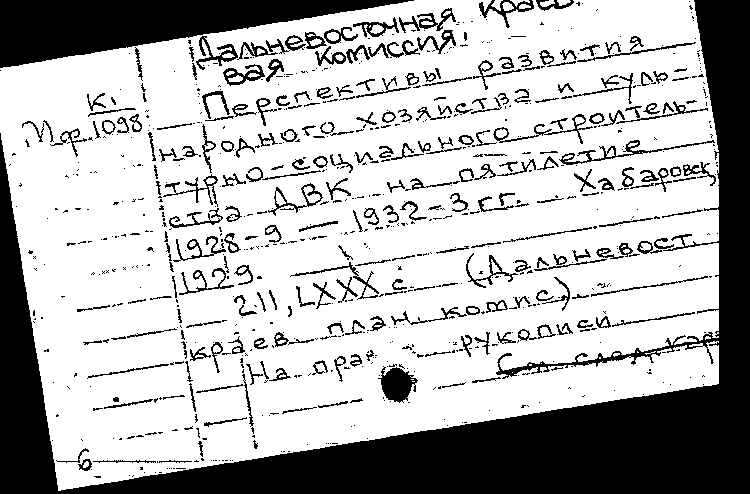 Дальневосточная краев.
вая комиссия.
К1
Мф.1098
Перспективы развития
народного хозяйства и куль-
турно-социального строитель-
ства ДВК на пятилетие
1928-9 — 1932-3 гг. Хабаровск,
1929.
211, LXXX с. (Дальневост.
краев. план. комис.).
На прав рукописи.
См. след. кар
6